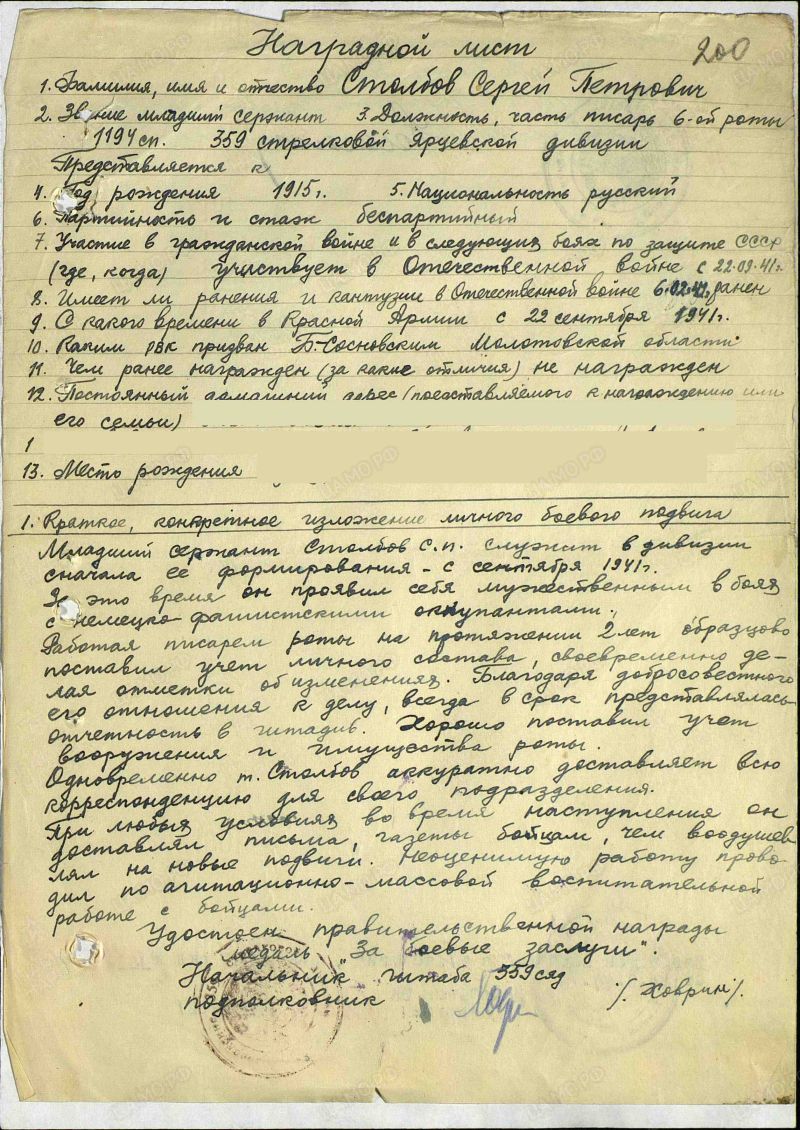 Наградной лист
200
1. Фамилия, имя и отчество Столбов Сергей Петрович
2. Звание младший сержант 3. Должность, часть писарь 6-ой роты
1194 сп. 359 стрелковой Ярцевской дивизии
Представляется к
4. Год рождения 1915 г. 5. Национальность русский
6. Партийность и стаж беспартийный
7. Участие в гражданской войне и в следующих боях по защите СССР
(где, когда) участвует в Отечественной войне с 22.09.41г.
8. Имеет ли ранения и кантузии в Отечественной войне 6.02.42 ранен
9. С какого времени в Красной Армии с 22 сентября 1941г.
10. Каким рвк призван Б-Сосновским Молотовской области
11. Чем ранее награжден (за какие отличия) не награжден
12. Постоянный домашний адрес (представляемого к награждению или
его семьи)
1
13. Место рождения
1. Краткое, конкретное изложение личного боевого подвига
Младший сержант Столбов С.П. служит в дивизии
сначала ее формирования - с сентября 1941г.
За это время он проявил себя мужественным в боях
с немецко-фашистскими оккупантами.
Работая писарем роты на протяжении 2 лет образцово
поставил учет личного состава, своевременно де-
лая отметки об изменениях. Благодаря добросовестного
его отношения к делу, всегда в срок представлялась
отчетность в штадив. Хорошо поставил учет
вооружения и имущества роты.
Одновременно т. Столбов аккуратно доставляет всю
корреспонденцию для своего подразделения.
При любых условиях во время наступления он
доставлял письма, газеты бойцам, чем воодушев
лял на новые подвиги. Неоценимую работу прово-
дил по агитационно-массовой воспитательной
работе с бойцами.
Удостоен правительственной награды
медаль "За боевые заслуги".
Начальник штаба 359 сяд
подполковник /. Ховрин /.